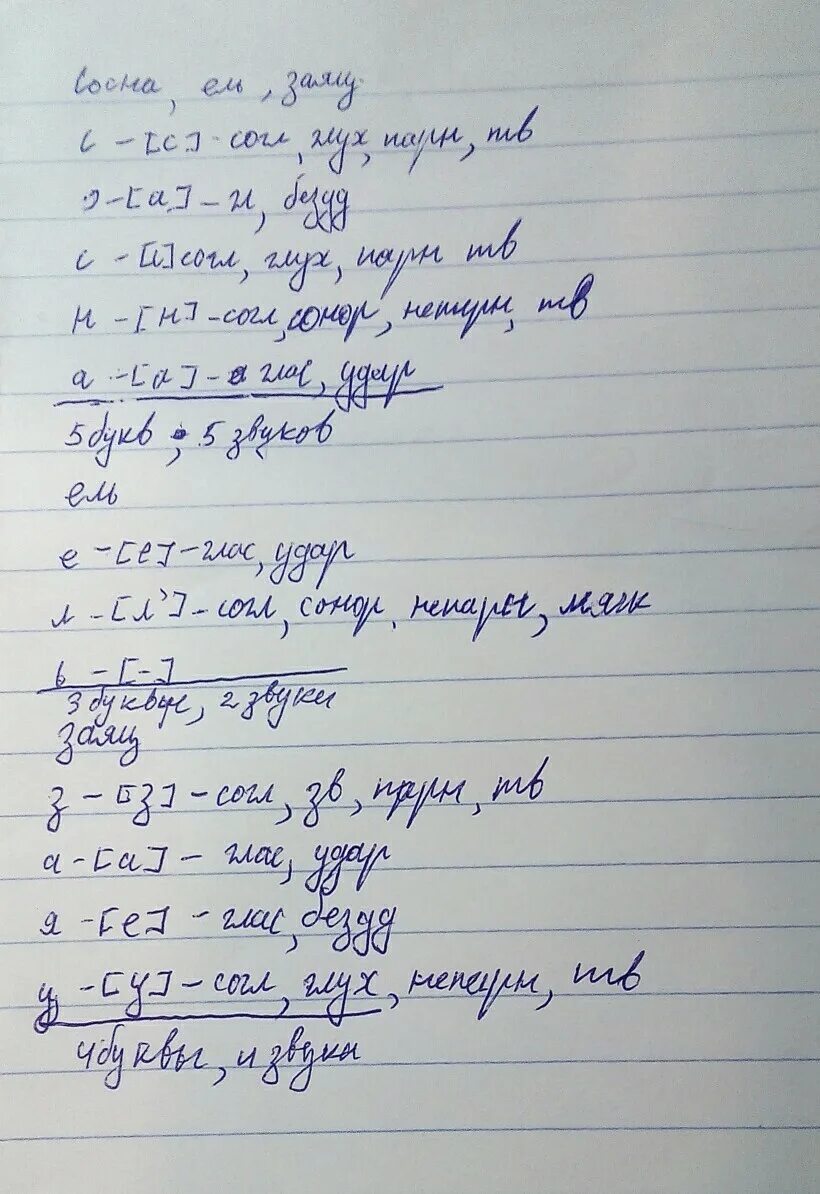 Сосна, ель, заяц.
С - [с] - согл, глух, парн, тв
о - [а] - гл, безуд
с - [с] согл, глух, парн тв
н - [н] - согл, сонор, непарн, тв
а - [а] - глас, удар
5 букв, 5 звуков
ель
е - [е] - глас, удар
л - [л'] - согл, сонор, непарн, мягк
ь - [-]
3 буквы, 2 звуки
заяц
з - [з] - согл, зв, парн, тв
а - [а] - глас, удар
я - [е] - глас, безуд
ц - [ц] - согл, глух, непарн, тв
4 буквы, 4 звуки